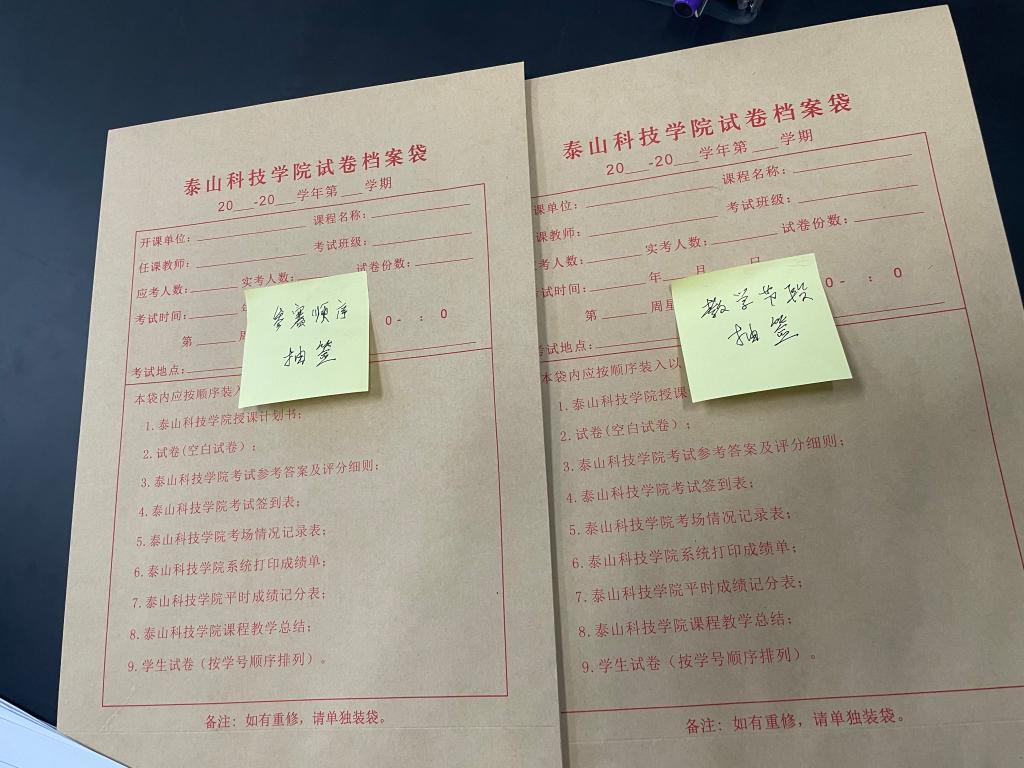 泰山科技学院试卷档案袋
20___-20___学年第___学期
开课单位： 课程名称：
任课教师： 考试班级：
应考人数： 实考人数： 试卷份数：
考试时间：
第 周
0- : 0
考试地点：
本袋内应按顺序装入
1.泰山科技学院授课计划书；
2.试卷(空白试卷)；
3.泰山科技学院考试参考答案及评分细则；
4.泰山科技学院考试签到表；
5.泰山科技学院考场情况记录表；
6.泰山科技学院系统打印成绩单；
7.泰山科技学院平时成绩记分表；
8.泰山科技学院课程教学总结；
9.学生试卷（按学号顺序排列）。
备注：如有重修，请单独装袋。
参赛顺序
抽签
泰山科技学院试卷档案袋
20___-20___学年第___学期
课单位： 课程名称：
课教师： 考试班级：
考人数： 实考人数： 试卷份数：
试时间： 年 月 日
第 周星
0- : 0
考试地点：
本袋内应按顺序装入以
1.泰山科技学院授课
2.试卷(空白试卷)；
3.泰山科技学院考试参考答案及评分细则；
4.泰山科技学院考试签到表；
5.泰山科技学院考场情况记录表；
6.泰山科技学院系统打印成绩单；
7.泰山科技学院平时成绩记分表；
8.泰山科技学院课程教学总结；
9.学生试卷（按学号顺序排列）。
备注：如有重修，请单独装袋。
教学节段
抽签